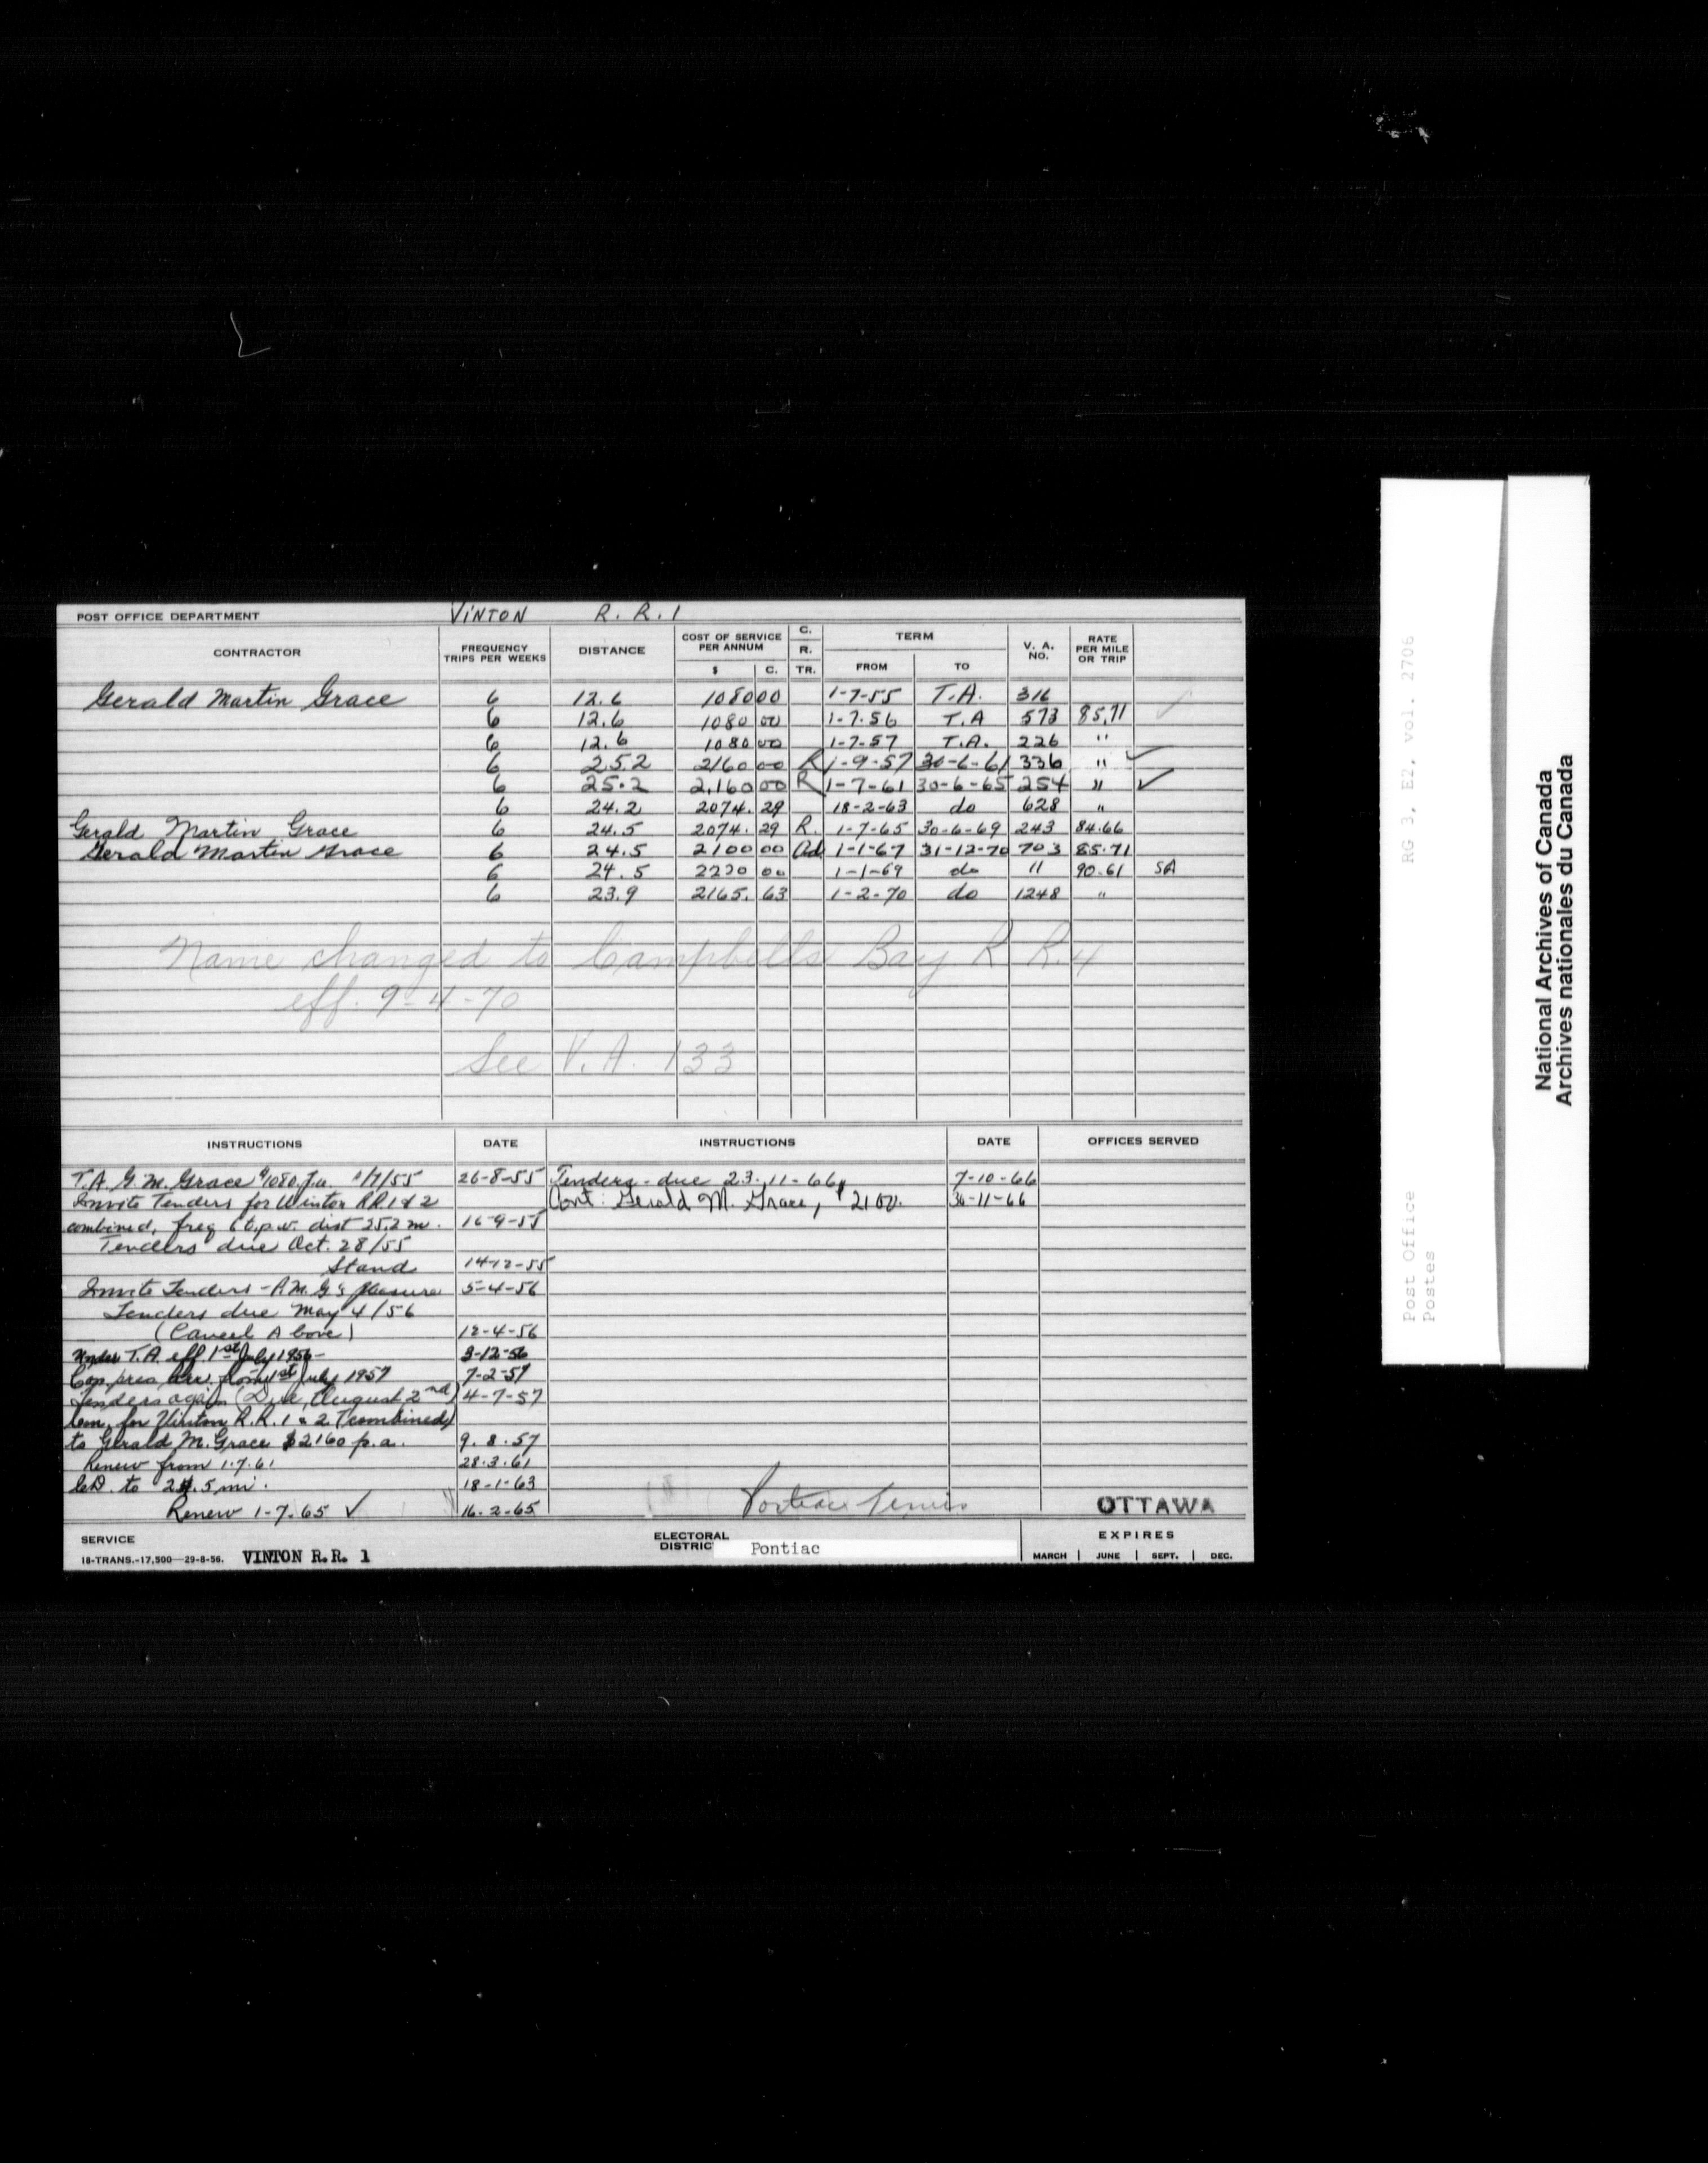 POST OFFICE DEPARTMENT VINTON R. R. 1
CONTRACTOR FREQUENCY TRIPS PER WEEKS DISTANCE COST OF SERVICE PER ANNUM $ C. C. R. TR. TERM FROM TO V. A. NO. RATE PER MILE OR TRIP
Gerald Martin Grace 6 12.6 1080 00 1-7-55 T.A. 316
6 12.6 1080 00 1-7-56 T.A 573 85.71
6 12.6 1080 00 1-7-57 T.A. 226 "
6 25.2 2160 00 R 1-9-57 30-6-61 336 " ✓
6 25.2 2,160 00 R 1-7-61 30-6-65 254 " ✓
6 24.2 2074. 29 18-2-63 do 628 "
Gerald Martin Grace 6 24.5 2074. 29 R. 1-7-65 30-6-69 243 84.66
Gerald Martin Grace 6 24.5 2100 00 Ad 1-1-67 31-12-70 703 85.71
6 24.5 2220 00 1-1-69 do 11 90.61 SA
6 23.9 2165. 63 1-2-70 do 1248 "
Name changed to Campbells Bay R R. 4
eff. 9-4-70
See V.A. 133
INSTRUCTIONS DATE INSTRUCTIONS DATE OFFICES SERVED
T.A. G.M. Grace $1080. p.a. 1/7/55 26-8-55 Tenders - due 23-11-66, 7-10-66
Invite Tenders for Vinton RR. 1 & 2 Cont: Gerald M. Grace, $2100. 30-11-66
combined, freq 6 t.p.w. dist 25.2 m. 16-9-55
Tenders due Oct. 28/55
Stand 14-12-55
Invite Tenders - P.M.G's pleasure 5-4-56
Tenders due May 4/56
(Cancel Above) 12-4-56
Under T.A. eff. 1st July 1956 - 3-12-56
pres. 1st July 1957 7-2-57
Tenders again (Due, August 2nd) 4-7-57
for Vinton R.R. 1 & 2 (combined)
to Gerald M. Grace $2160 p.a. 9.8.57
Renew from 1.7.61 28.3.61
to 24.5 mi. 18-1-63
Renew 1-7-65 ✓ 16-2-65
OTTAWA
SERVICE ELECTORAL DISTRIC Pontiac EXPIRES
18-TRANS.-17,500—29-8-56. VINTON R.R. 1 MARCH | JUNE | SEPT. | DEC.
Post Office RG 3, E2, vol. 2706
Postes
National Archives of Canada
Archives nationales du Canada